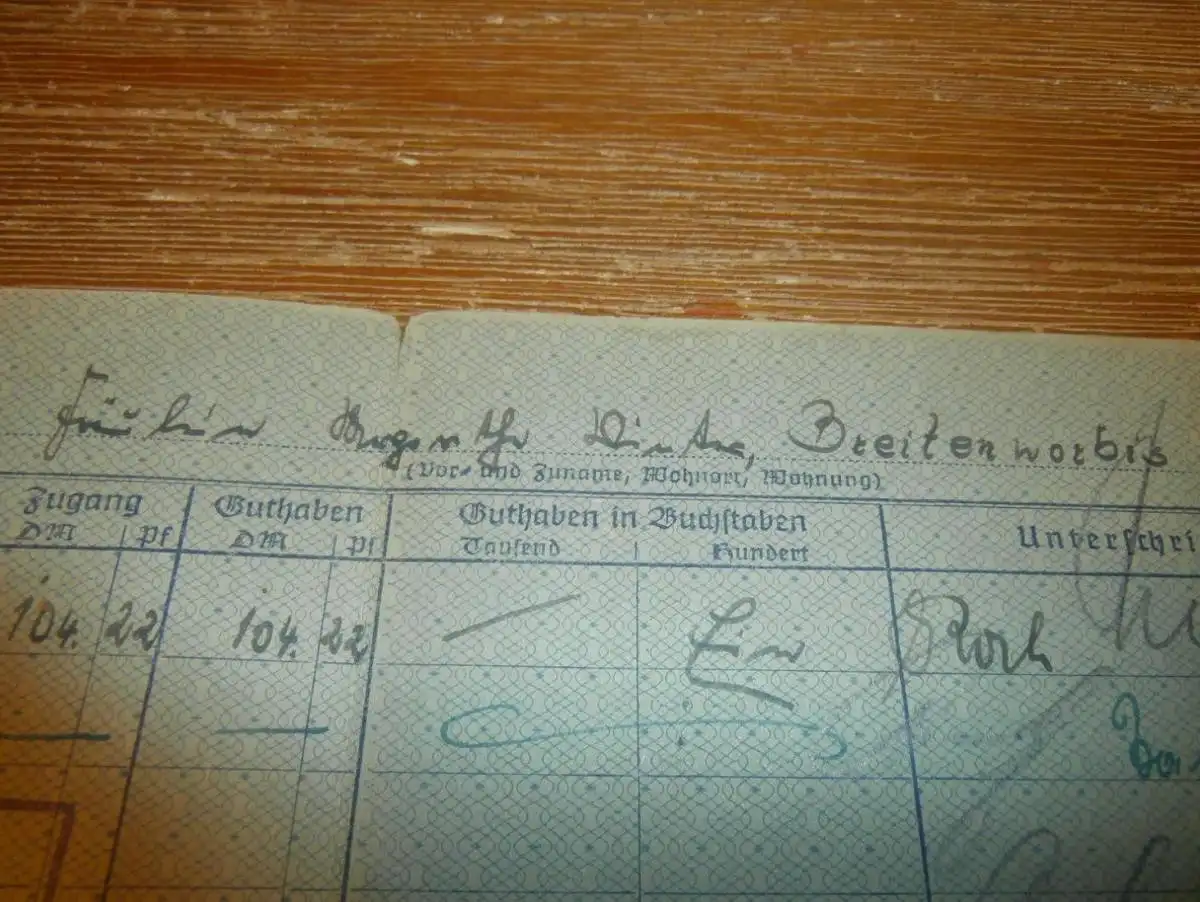 Fräulein Margarethe Winter, Breitenworbis
(Vor- und Zuname, Wohnort, Wohnung)
Zugang Guthaben Guthaben in Buchstaben Unterschri
DM Pf DM Pf Tausend Hundert
104. 22 104. 22 — Ein Koch